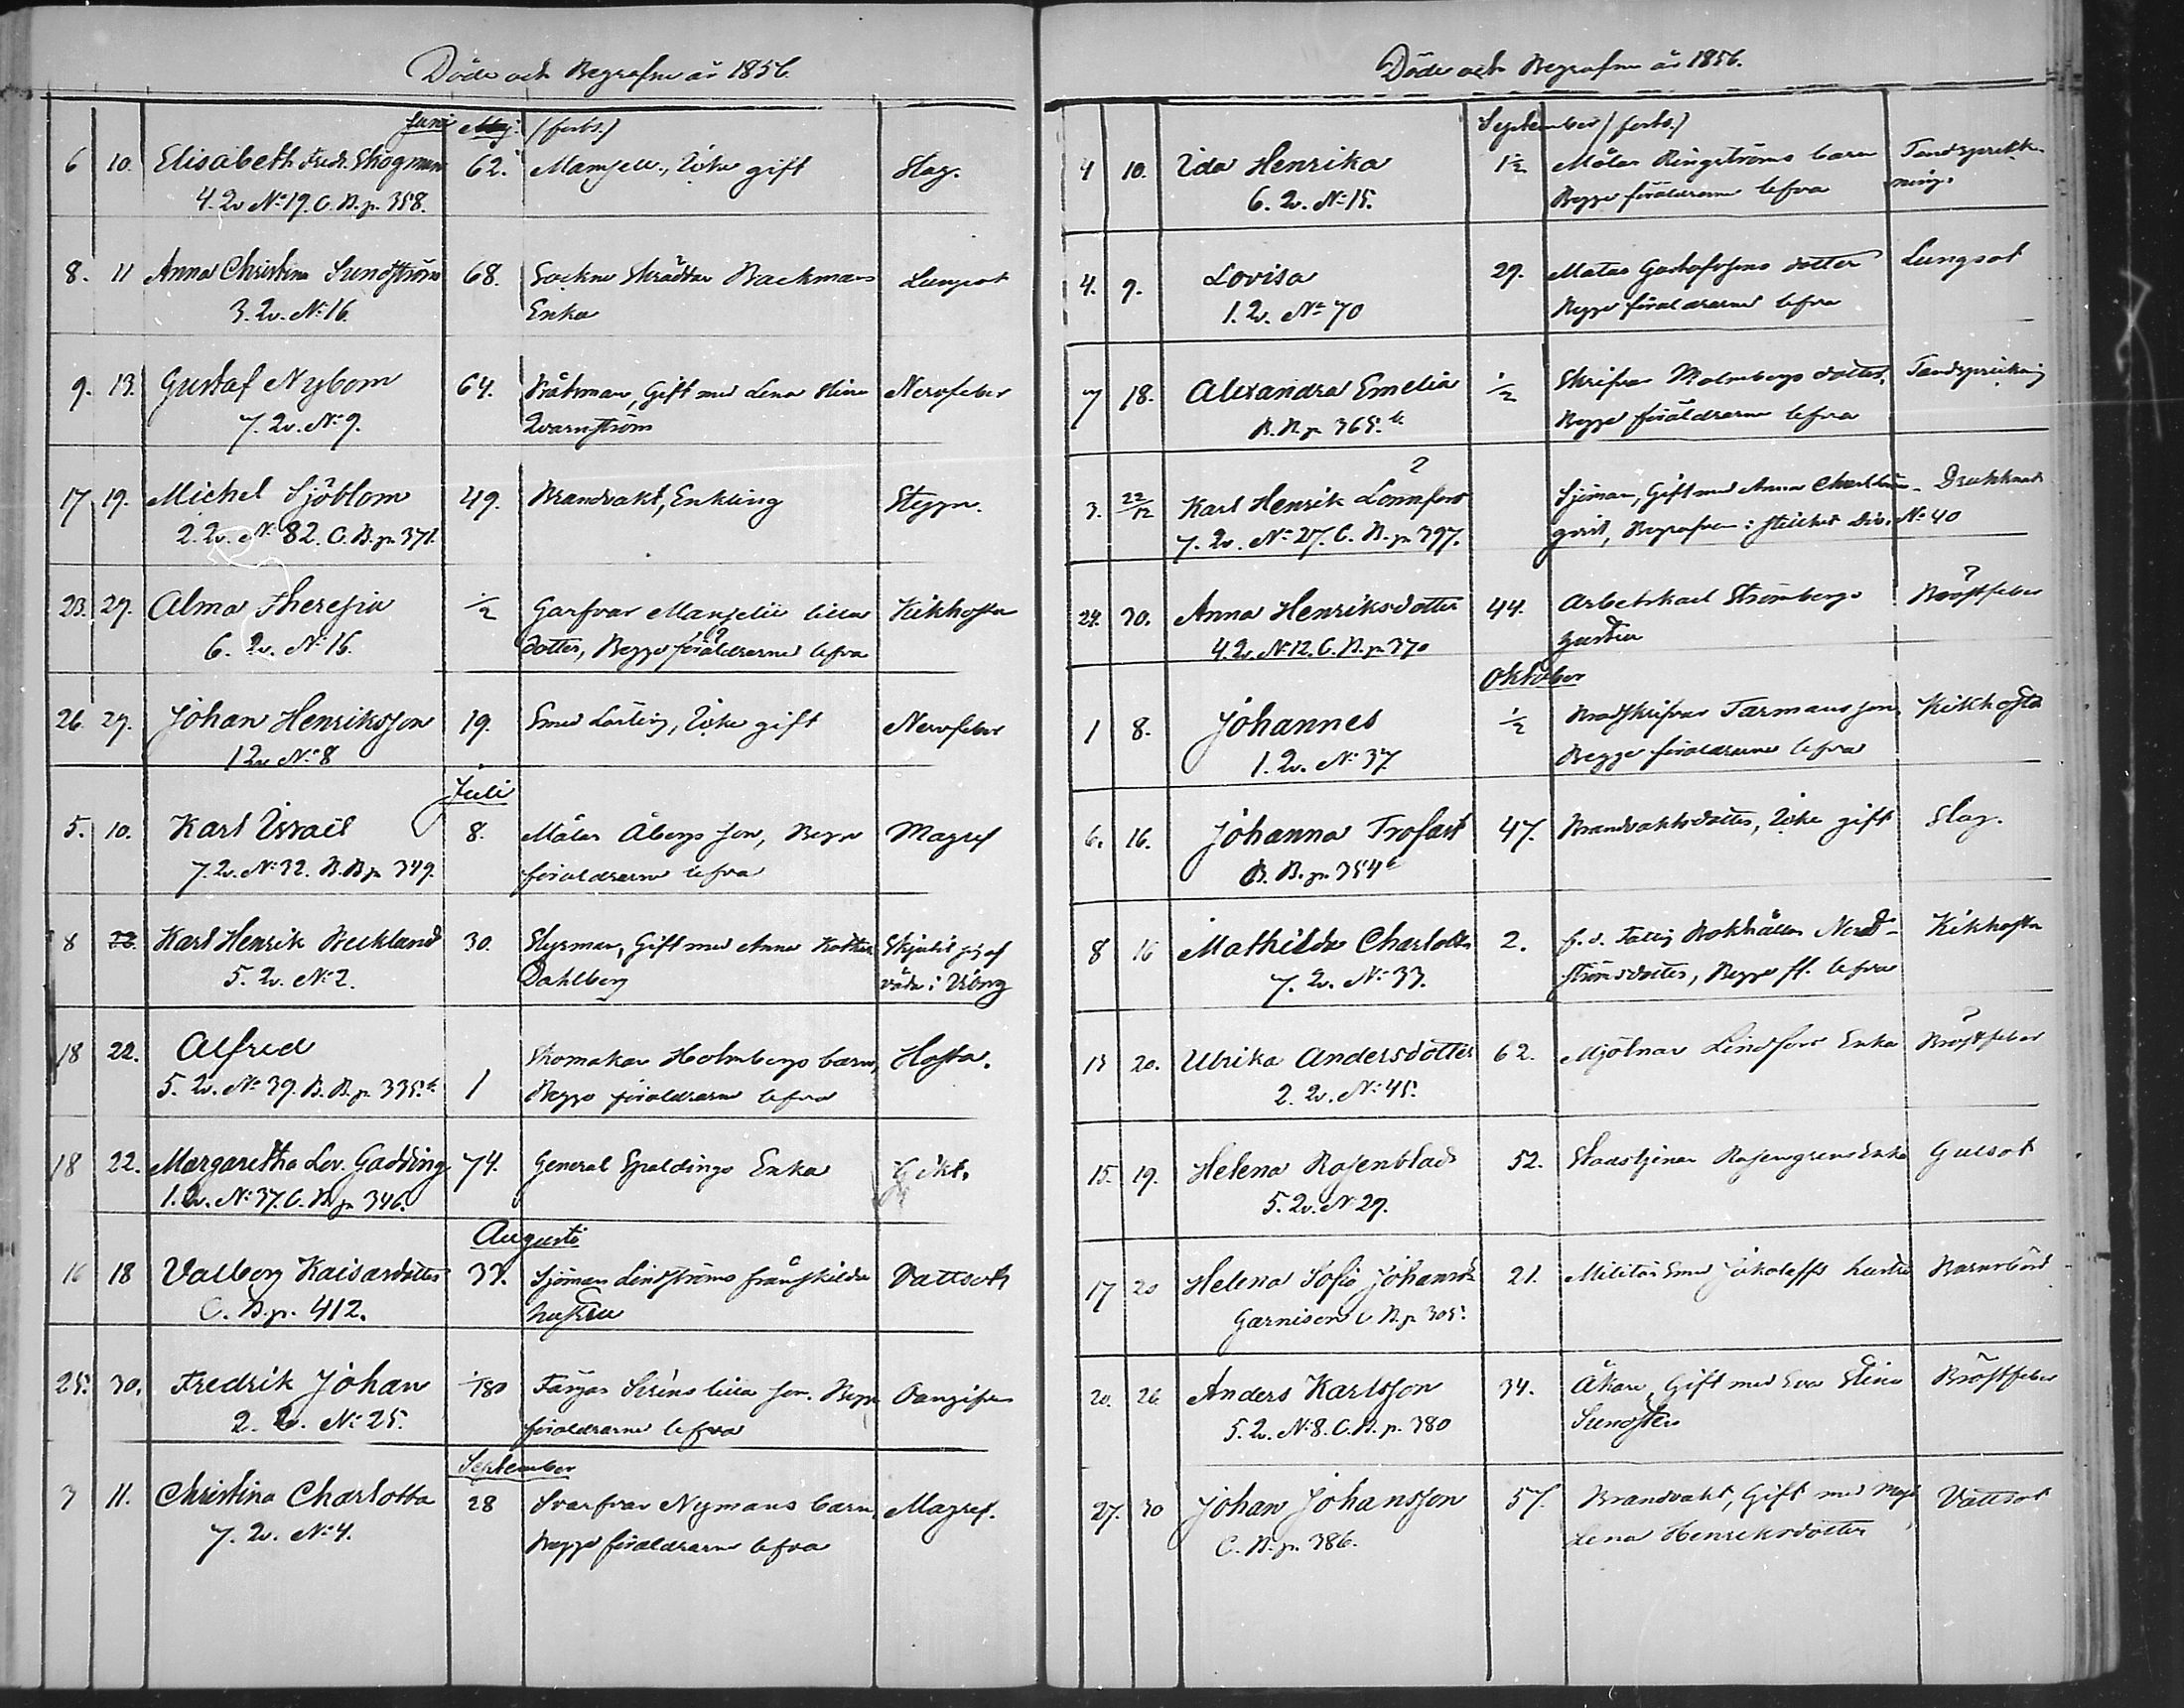 Döde och Begrafne år 1856
Juni (forts.)
6 10. Elisabeth Fredr. Skogman 62. Mamsell, icke gift Slag.
4. Qv. No 19. C. B. p. 358.
8. 11 Anna Christina Sundström 68. Sockne Skräddar Backmans Lungsot
3. Qv. No 16. Enka
9. 13. Gustaf Nybom 64. Gift med Lena Stina Nervfeber
7. Qv. No 9. Qvarnström
17 19. Michel Sjöblom 49. Brandvakt, Enkling Stygn.
2. Qv. No 82. C. B. p. 371.
23. 29. Alma Theresia ½ Garfvar lilla Kikhosta
6. Qv. No 16. dotter, Begge föräldrarne lefva
26 29. Johan Henriksson 19. Smed Lärling, icke gift Nervfeber
1 Qv No 8
Juli
5. 10. Karl Israel 8. Målar Åbergs son, Begge Magref
7. Qv. No 32. B. B. p. 349. föräldrarne lefva
8 Karl Henrik Wecklund 30. Styrman, Gift med Anna Skjutit sig af
5. Qv. No 2. Dahlberg våda i
18 22. Alfred 1 Skomakar Holmbergs barn, Hosta.
5. Qv. No 39. B. B. p. 335. Begge föräldrarne lefva
18 22. Margaretha Lov. Gadding 74. General Spaldings Enka Gikt.
1. Qv. No 37. C. B. p. 346.
Augusti
16 18 Valborg Kaisardotter 33. Sjöman Lindströms frånskilda Vattsot
C. B. p. 412. hustru
25. 30. Fredrik Johan 1/180 Färgar lilla son. Begge Oangifven
2. Qv. No 25. föräldrarne lefva
September
3 11. Christina Charlotta 28 Svarfvar Nymans barn, Magref.
7. Qv. No 4. Begge föräldrarne lefva
Döde och Begrafne år 1856.
September (forts.)
4 10. Ida Henrika 1½ Målar Ringströms barn Tandsprick-
6. Qv. No 15. Begge föräldrarne lefva ning.
4. 9. Lovisa 29. Gustafssons dotter Lungsot
1. Qv. No 70 Begge föräldrarne lefva
7 18. Alexandra Emelia ½ Skrifvar Malmbergs dotter, Tandsprickning
B. B. p. 365. b. Begge föräldrarne lefva
3. 22/12 Karl Henrik Lönnfors Sjöman, Gift med Anna Drukknat
7. Qv. No 27. C. B. p. 397. Begrafven i No 40
24. 30. Anna Henriksdotter 44. Arbetskarl Strömbergs Bröstfeber
4. Qv. No 12. C. B. p. 370 hustru
Oktober
1 8. Johannes ½ son, Kikhosta
1. Qv. No 37. Begge föräldrarne lefva
6. 16. Johanna Trofast 47. Brandvaktsdotter, icke gift Slag.
B. B. p. 354
8 16 Mathilda Charlotta 2. f. d. Bokhållar Nord- Kikhosta
7. Qv. No 33. ströms dotter, Begge ff. lefva
13 20. Ulrika Andersdotter 62. Mjölnar Lindfors Enka Bröstfeber
2. Qv. No 45.
15. 19. Helena Rosenblad 52. Rosengrens Enka Gulsot
5. Qv. No 29.
17 20 Helena Sofia Johansdr 21. Militär Smed hustru Barnsbörd
Garnison C. B. p. 305.
20. 26 Anders Karlsson 34. Åkare, Gift med Eva Stina Bröstfeber
5. Qv. No 8. C. B. p. 380 Sundsten
27. 30 Johan Johansson 57. Brandvakt, Gift med Maja Vattsot
C. B. p. 386. Lena Henriksdotter